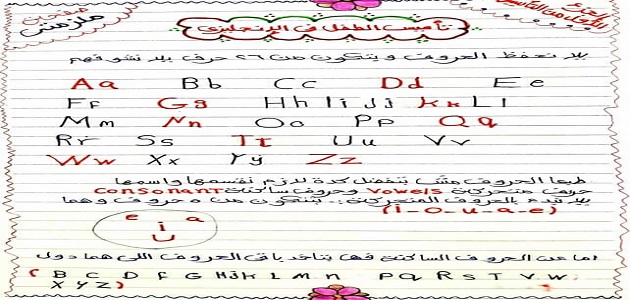 صفحات
ملزمتى
الجزء
الأول من التأسيس
تأسيس الطفل فى الإنجليزى
يلا نحفظ الحروف ويتكون من ٢٦ حرف يلا نشوفهم
Aa Bb Cc Dd Ee
Ff Gg Hh Ii Jj Kk Ll
Mm Nn Oo Pp Qq
Rr Ss Tt Uu Vv
Ww Xx Yy Zz
طبعا الحروف مش تتحفظ كدة لازم نقسمها واسمها
حروف متحركة Vowels وحروف ساكنة Consonant
يلا نبدء بالحروف المتحركة :- بتتكون من ٥ حروف وهما
(i-o-u-a-e)
e i a
u
اما عن الحروف الساكنة فها بتاخد باقى الحروف اللى هما دول
( B C D F G H J K L M n P Q R S T V W
X Y Z )